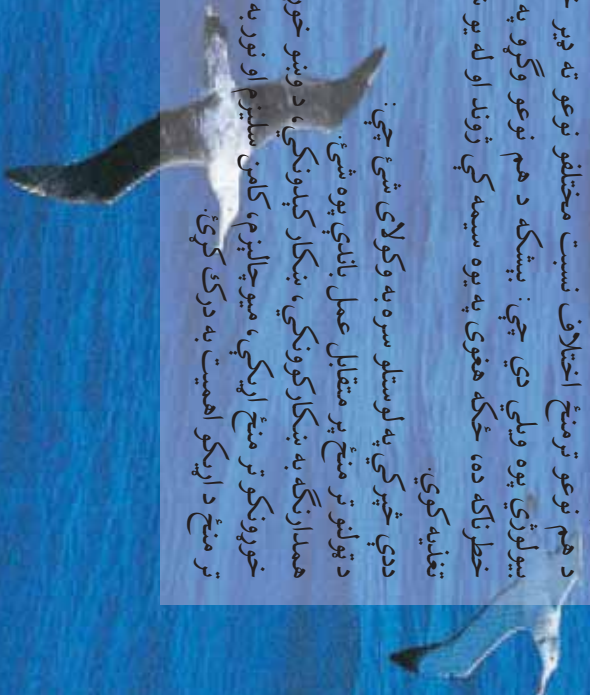 د هم نوعو ترمنځ اختلاف نسبت مختلفو نوعو ته ډېر
بيولوژي پوه ويلي دي چې: بېشکه د هم نوعو وګړو په
خطرناکه ده، ځکه هغوی په يوه سيمه کې ژوند او له يو
تغذيه کوي.
ددې څپرکي په لوستلو سره به وکولای شئ چې:
د ټولنو تر منځ پر متقابل عمل باندې پوه شئ.
همدارنګه به ښکار کوونکي، ښکار کېدونکي، د وښو
خوړونکو تر منځ اړيکي، ميوچاليزم، کامن سليزم او نور به
تر منځ د اړيکو اهميت به درک کړئ.